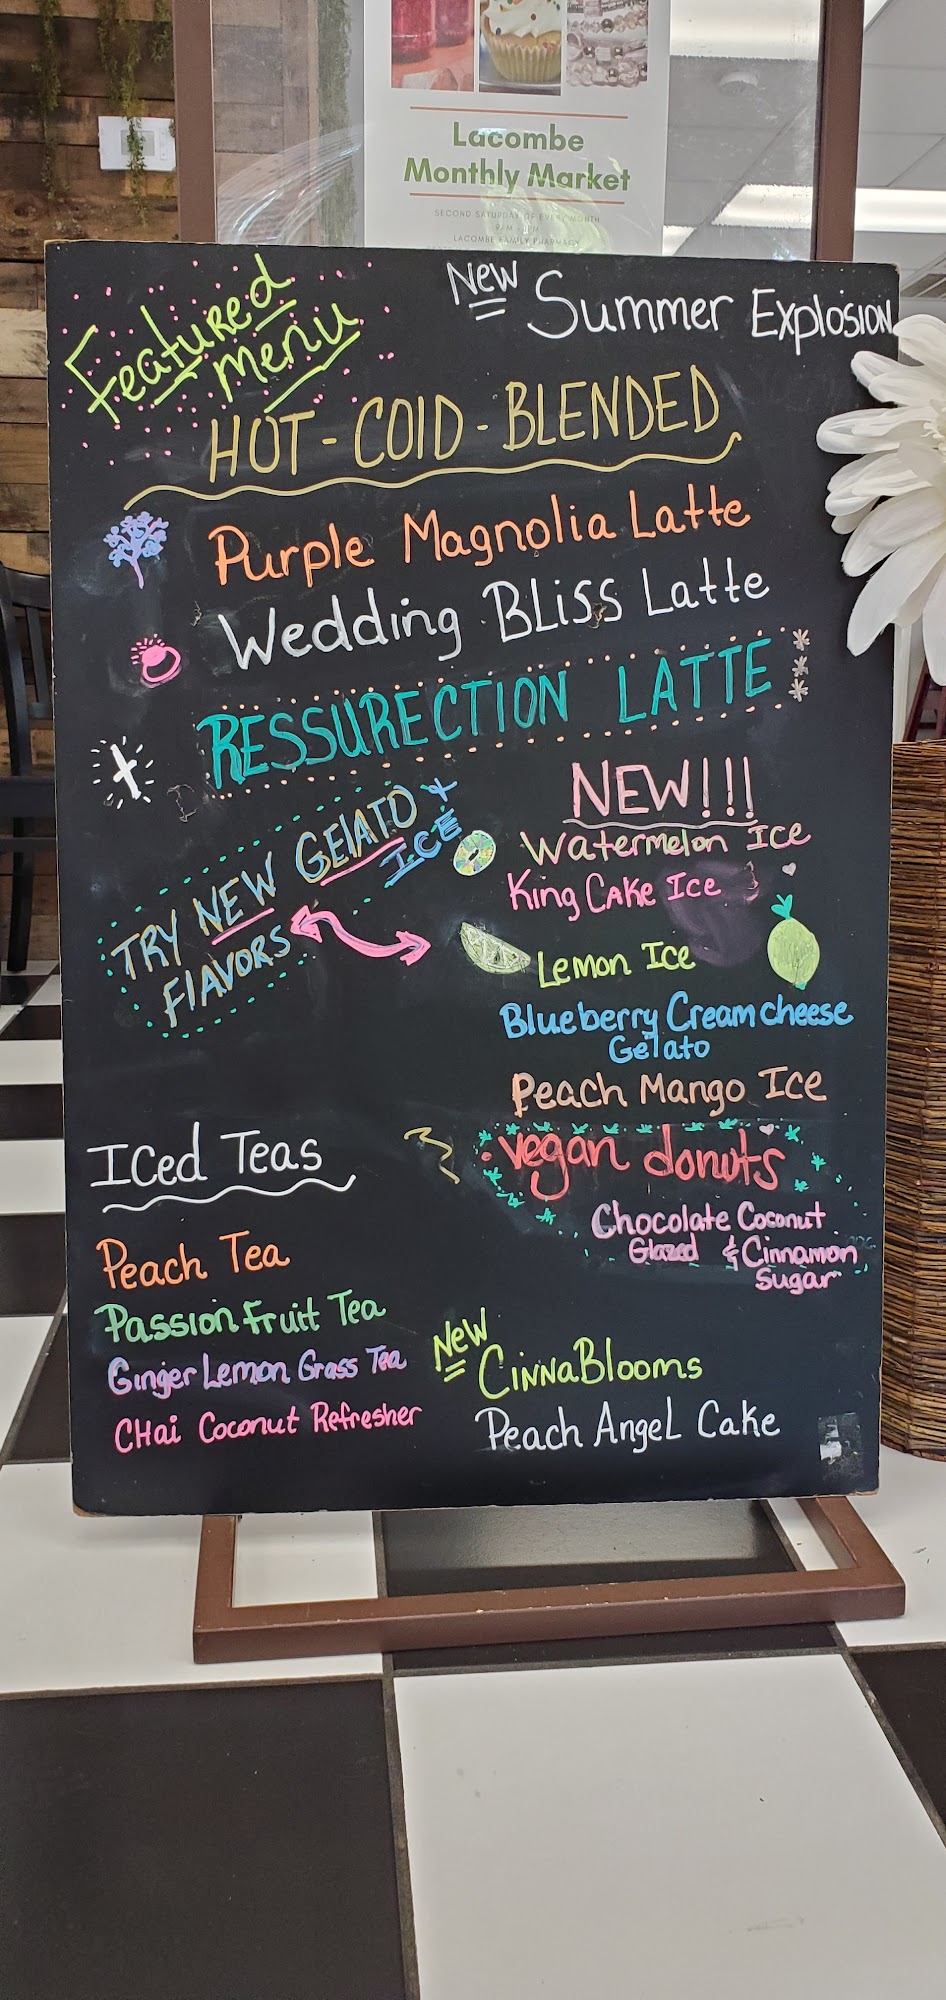 Lacombe
Monthly Market
SECOND SATURDAY OF EVERY MONTH
LACOMBE FAMILY PHARMACY
Featured
Menu
New Summer Explosion
HOT-COlD-BLENDED
Purple Magnolia Latte
Wedding BLiss Latte
RESSURECTION LATTE
TRY NEW GElATO &
ICE
FlAVORS
NEW!!!
Watermelon Ice
King Cake Ice
Lemon Ice
Blueberry Creamcheese
Gelato
Peach Mango Ice
vegan donuts
Chocolate Coconut
Glazed & Cinnamon
Sugar
Iced Teas
Peach Tea
Passion Fruit Tea
Ginger Lemon Grass Tea
CHai Coconut Refresher
New
CinnaBlooms
Peach AngeL Cake